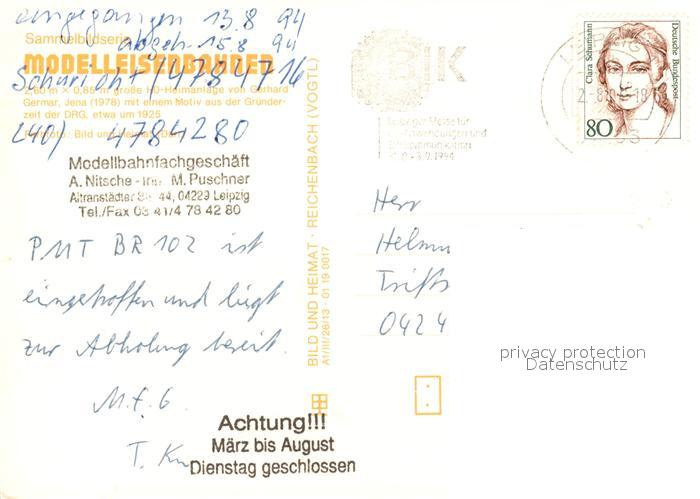 eingegangen 13.8 94
abgeh. 15.8 94
Sammelbildserie
MODELLEISENBAHNEN
4784716
2,60 m × 0,85 m große H0-Heimanlage von Gerhard
Germar, Jena (1978) mit einem Motiv aus der Gründer-
zeit der DRG, etwa um 1925
Bild und Heimat
4784280
Modellbahnfachgeschäft
A. Nitsche - Inh. M. Puschner
Altranstädter Str. 44, 04229 Leipzig
Tel./Fax 03 41/4 78 42 80
PMT BR 102 ist
eingetroffen und liegt
zur Abholung bereit.
M.f.G.
Achtung!!!
März bis August
Dienstag geschlossen
BILD UND HEIMAT · REICHENBACH (VOGTL)
A1/III/26/13 · 01 19 0017
Leipziger Messe für
1994
Clara Schumann
Deutsche Bundespost
80
Herr
Helmu
Trifts
0424
privacy protection
Datenschutz